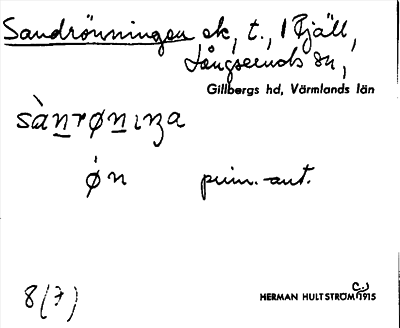 Sandrönningen ek, t., 1 Fjäll,
Långseruds sn,
Gillbergs hd, Värmlands län
sàn̲røn̲ıŋa
ǿn prim.-aut.
8(7)
HERMAN HULTSTRÖM 1915